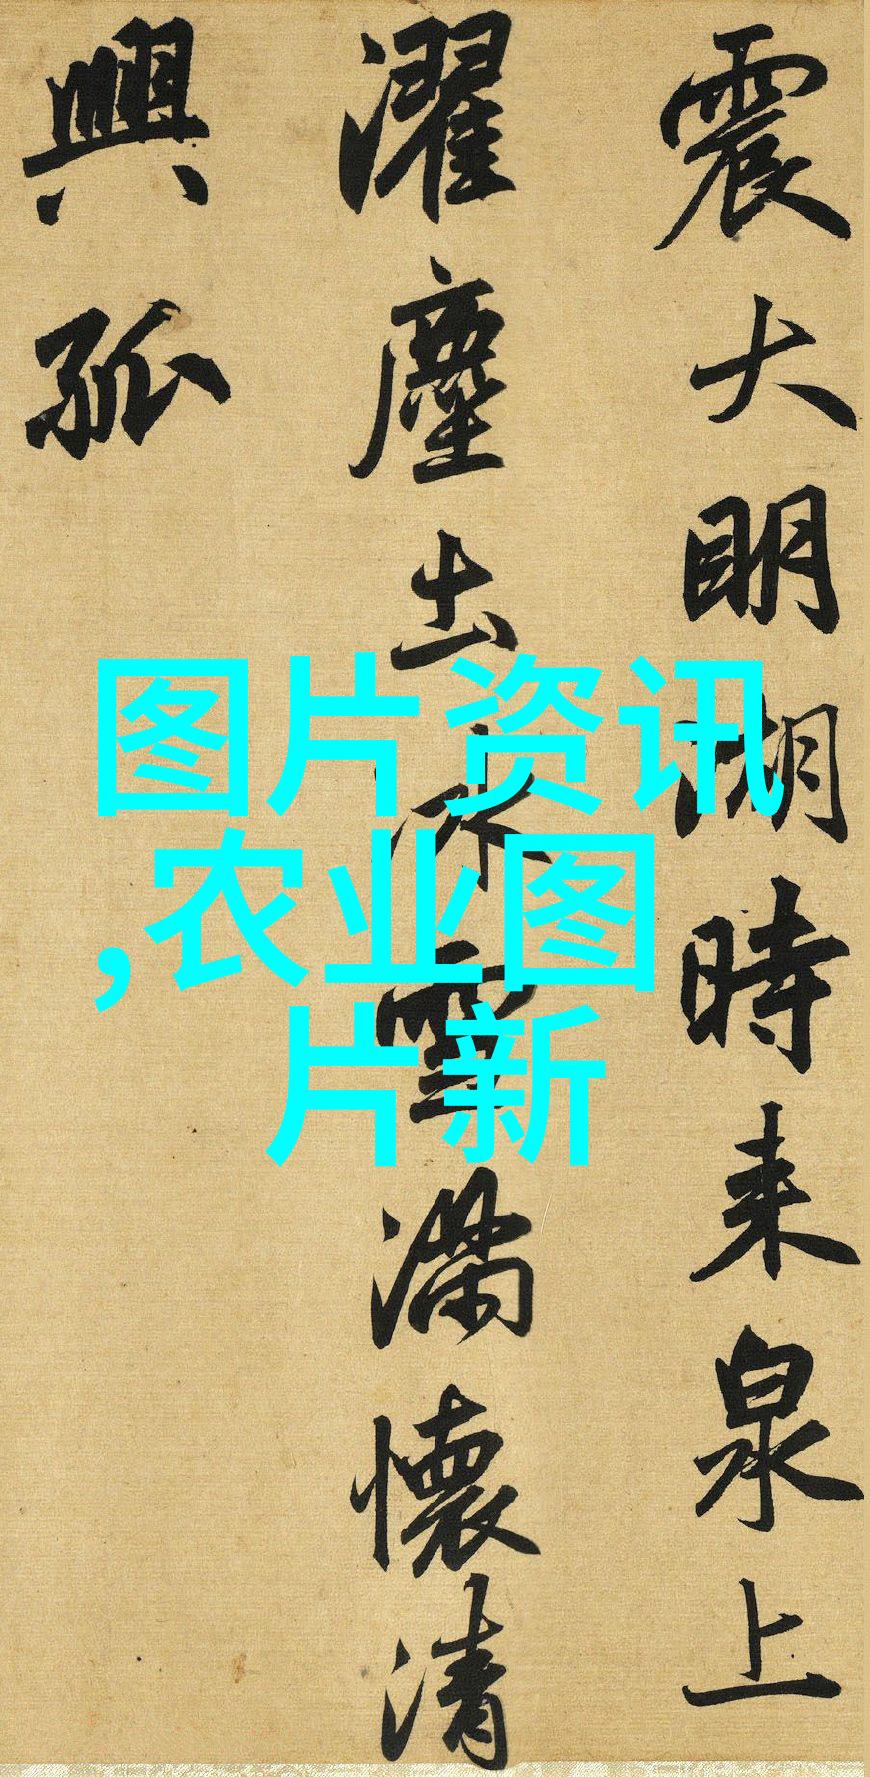 震大明湖時來泉上
濯塵土冰雪滿懷清
興孤
图片资讯
,农业图
片新